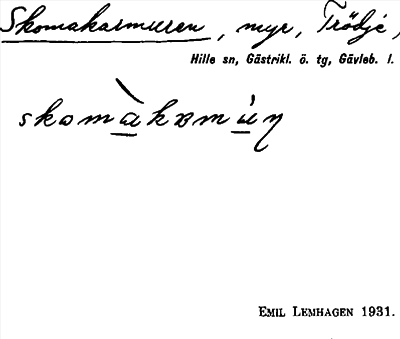 Skomakarmuren, myr, Trödje,
Hille sn, Gästrikl. ö. tg, Gävleb. l.
Emil Lemhagen 1931.